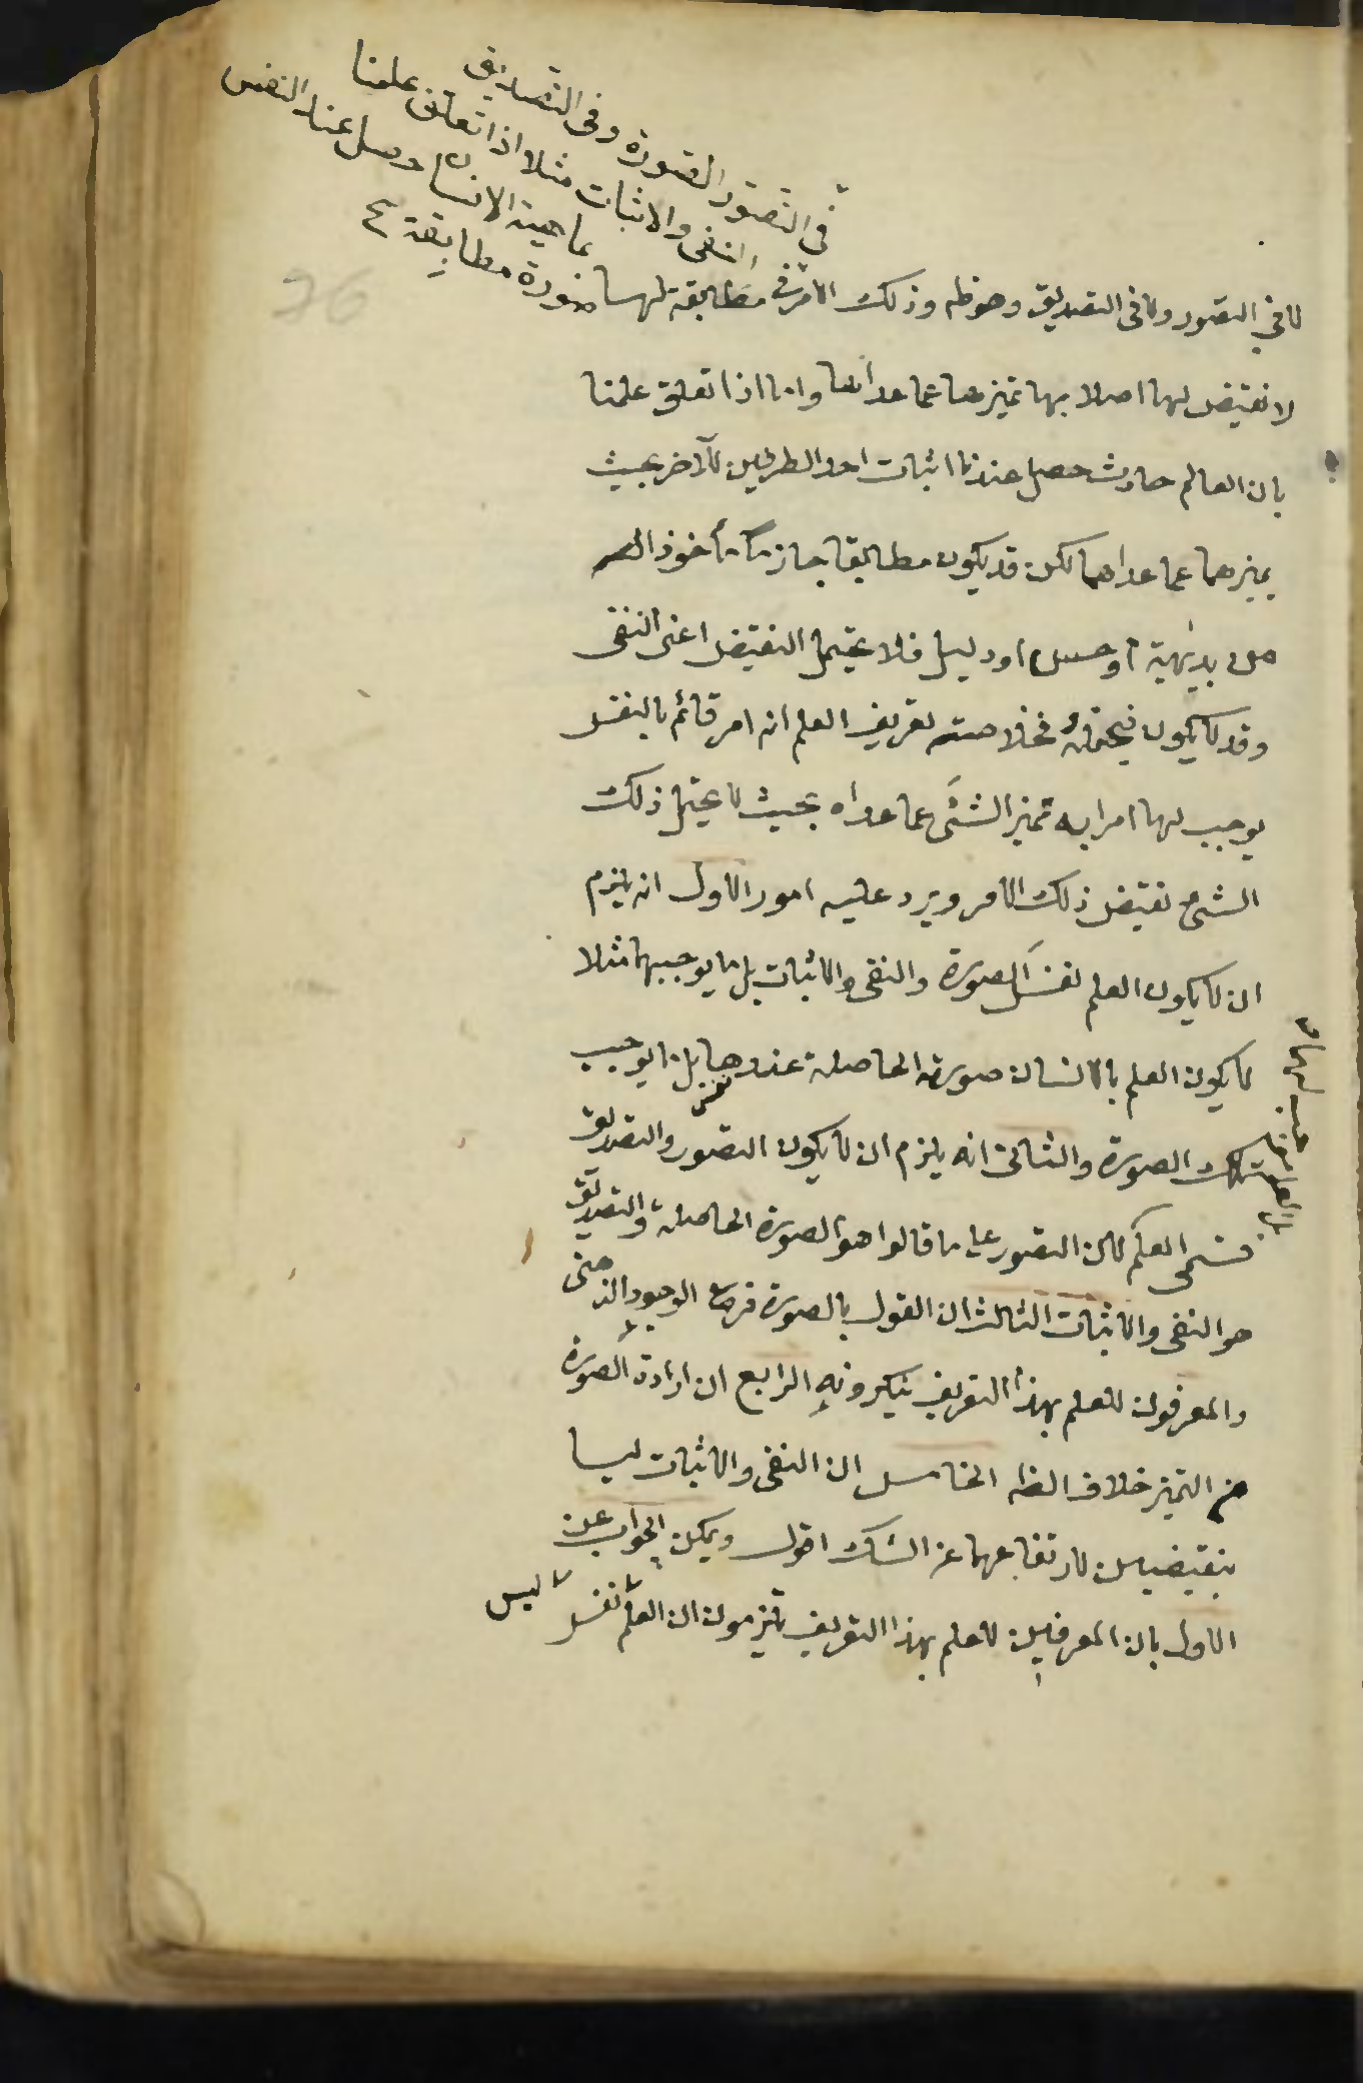 في التصور الصورة وفي التصديق
النفي والاثبات مثلا اذا تعلق علمنا
بماهية الانسان حصل عند النفس
صورة مطابقة
لا في التصور ولا في التصديق وهو ظ وذلك الامر في مطابقة لها
لا نقيض لها اصلا بها تميزها عما عداها واما اذا تعلق علمنا
بان العالم حادث حصل عندنا اثبات احد الطرفين للآخر بحيث
يميزهما عما عداهما لكن قد يكون مطابقا جازما مأخوذا
من بديهية او حس او دليل فلا يحتمل النقيض اعني النفي
وقد لا يكون فيحتمله فخلاصة تعريف العلم انه امر قائم بالنفس
يوجب لها امرا به تميز الشئ عما عداه بحيث لا يحتمل ذلك
الشئ نقيض ذلك الامر ويرد عليه امور الاول انه يلزم
ان لا يكون العلم نفس الصورة والنفي والاثبات بل ما يوجبها مثلا
لا يكون العلم بالانسان صورته الحاصلة عندها بل ما يوجب
تلك الصورة والثاني انه يلزم ان لا يكون التصور والتصديق
قسمي العلم لان التصور على ما قالوا هو الصورة الحاصلة والتصديق
هو النفي والاثبات الثالث ان القول بالصورة فرع الوجود الذهني
والمعرفون للعلم بهذا التعريف ينكرونه الرابع ان ارادة الصورة
من التميز خلاف الظ الخامس ان النفي والاثبات ليسا
بنقيضين لارتفاعهما عن الشك اقول ويمكن الجواب عن
الاول بان المعرفين للعلم بهذا التعريف يلتزمون ان العلم ليس نفس